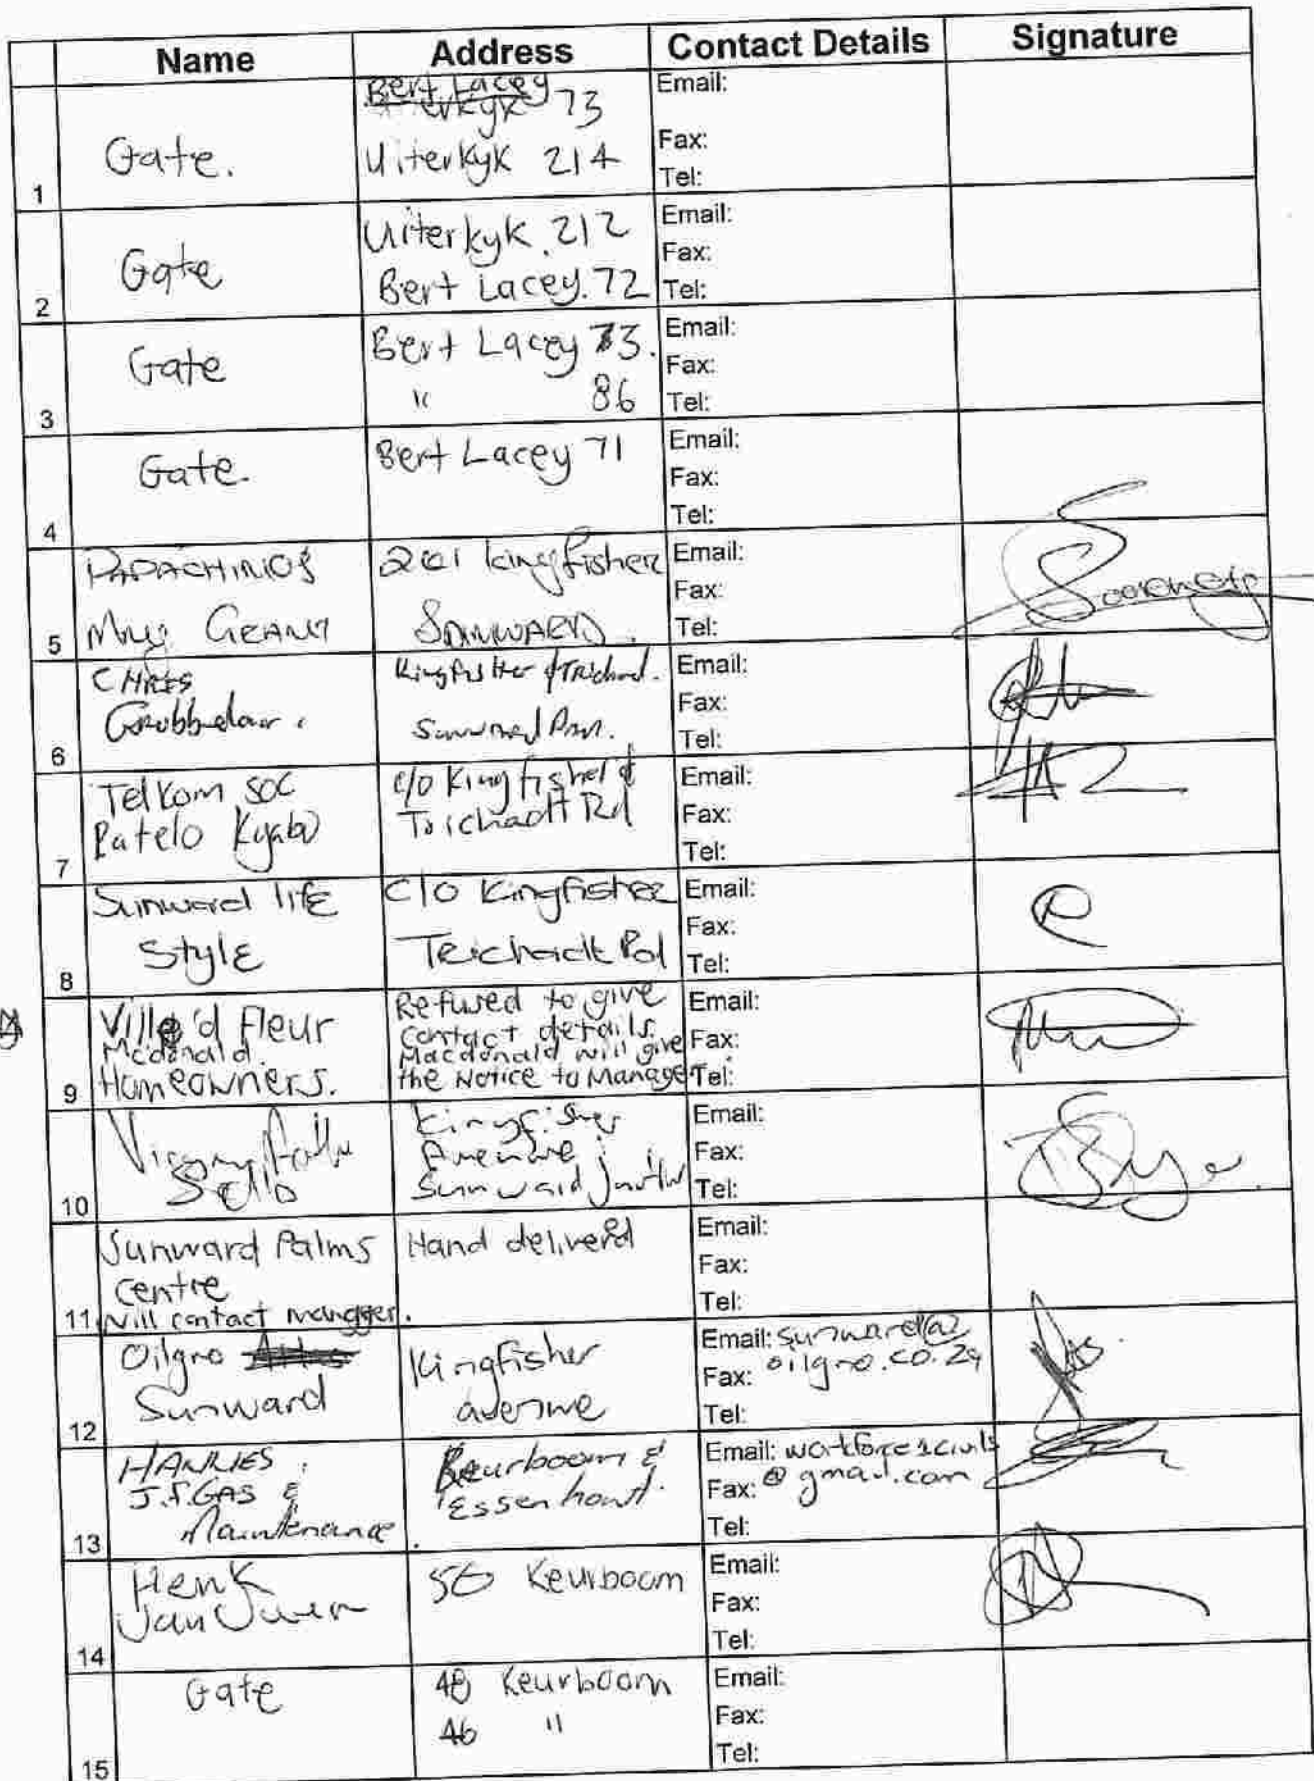 Name Address Contact Details Signature
1
Gate.
Bert Lacey 73
Uiterkyk 214
Email:
Fax:
Tel:
2
Gate
Uiterkyk.212
Bert Lacey.72
Email:
Fax:
Tel:
3
Gate
Bert Lacey 73.
" 86
Email:
Fax:
Tel:
4
Gate.
Bert Lacey 71
Email:
Fax:
Tel:
5
PAPACHINOS
201 kingfisher
Email:
Fax:
Tel:
6
CHRIS
Email:
Fax:
Tel:
7
Telkom SOC
c/o Kingfisher &
Rd
Email:
Fax:
Tel:
8
Sunward life
Style
C/o Kingfisher
Email:
Fax:
Tel:
9
d Fleur
Mcdonald.
Homeowners.
Refused to give
contact details
Macdonald will give
the Notice to Manage
Email:
Fax:
Tel:
10
Sello
Kingfisher
Avenue
Sunward
Email:
Fax:
Tel:
11
Sunward Palms
Centre
Will contact manager.
Hand deliverd
Email:
Fax:
Tel:
12
Oilgro
Sunward
Kingfisher
avenue
Email: sunward@
Fax: oilgro.co.za
Tel:
13
J.F. GAS &
Maintenance
Keurboom &
Essenhout.
Email:
Fax: @ gmail.com
Tel:
14
Henk
56 Keurboom
Email:
Fax:
Tel:
15
Gate
48 Keurboom
46 "
Email:
Fax:
Tel: